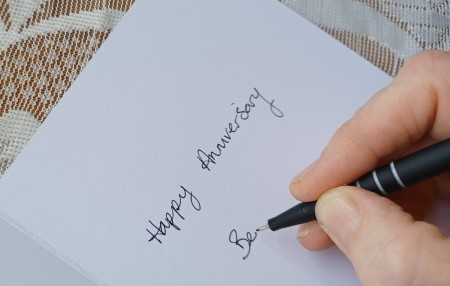 Happy Anniversary
Be